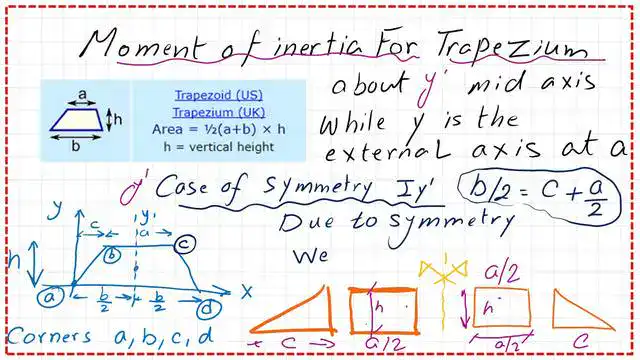 Moment of inertia For Trapezium
about y' mid axis
while y is the
external axis at a
a
h
b
Trapezoid (US)
Trapezium (UK)
Area = ½(a+b) × h
h = vertical height
y' Case of symmetry Iy'
b/2 = C + a/2
Due to symmetry
We
y
y'
c
a
h
a
b
c
d
b/2
b/2
x
Corners a, b, c, d
C
h
a/2
a/2
h
a/2
C